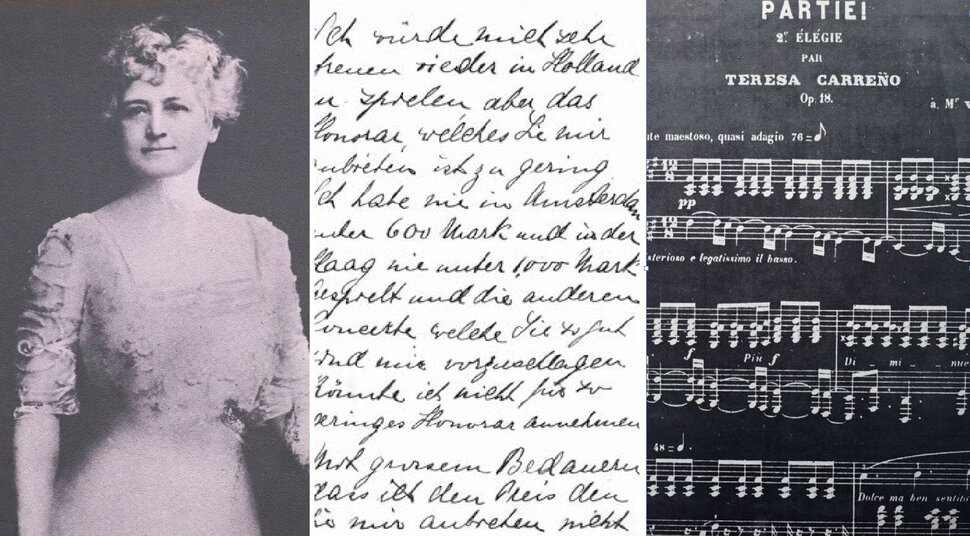 Ich würde mich sehr
freuen wieder in Holland
u spielen aber das
Honorar, welches Sie mir
nbieten ist zu gering
Ich habe nie in Amsterdam
unter 600 Mark und in der
Haag nie unter 1000 Mark
gespielt und die anderen
Concerte welche Sie so gut
sind mir vorzuschlagen
könnte ich nicht für so
geringes Honorar annehmen
Mit grossem Bedauern
dass ich den Preis den
Sie mir anbieten nicht
PARTIE!
2e. ÉLÉGIE
PAR
TERESA CARREÑO
Op: 18.
à. Mr
te maestoso, quasi adagio 76 =
pp
sterioso e legatissimo il basso.
f Più f Di _ mi _ nue
48 =
Dolce ma ben sentito